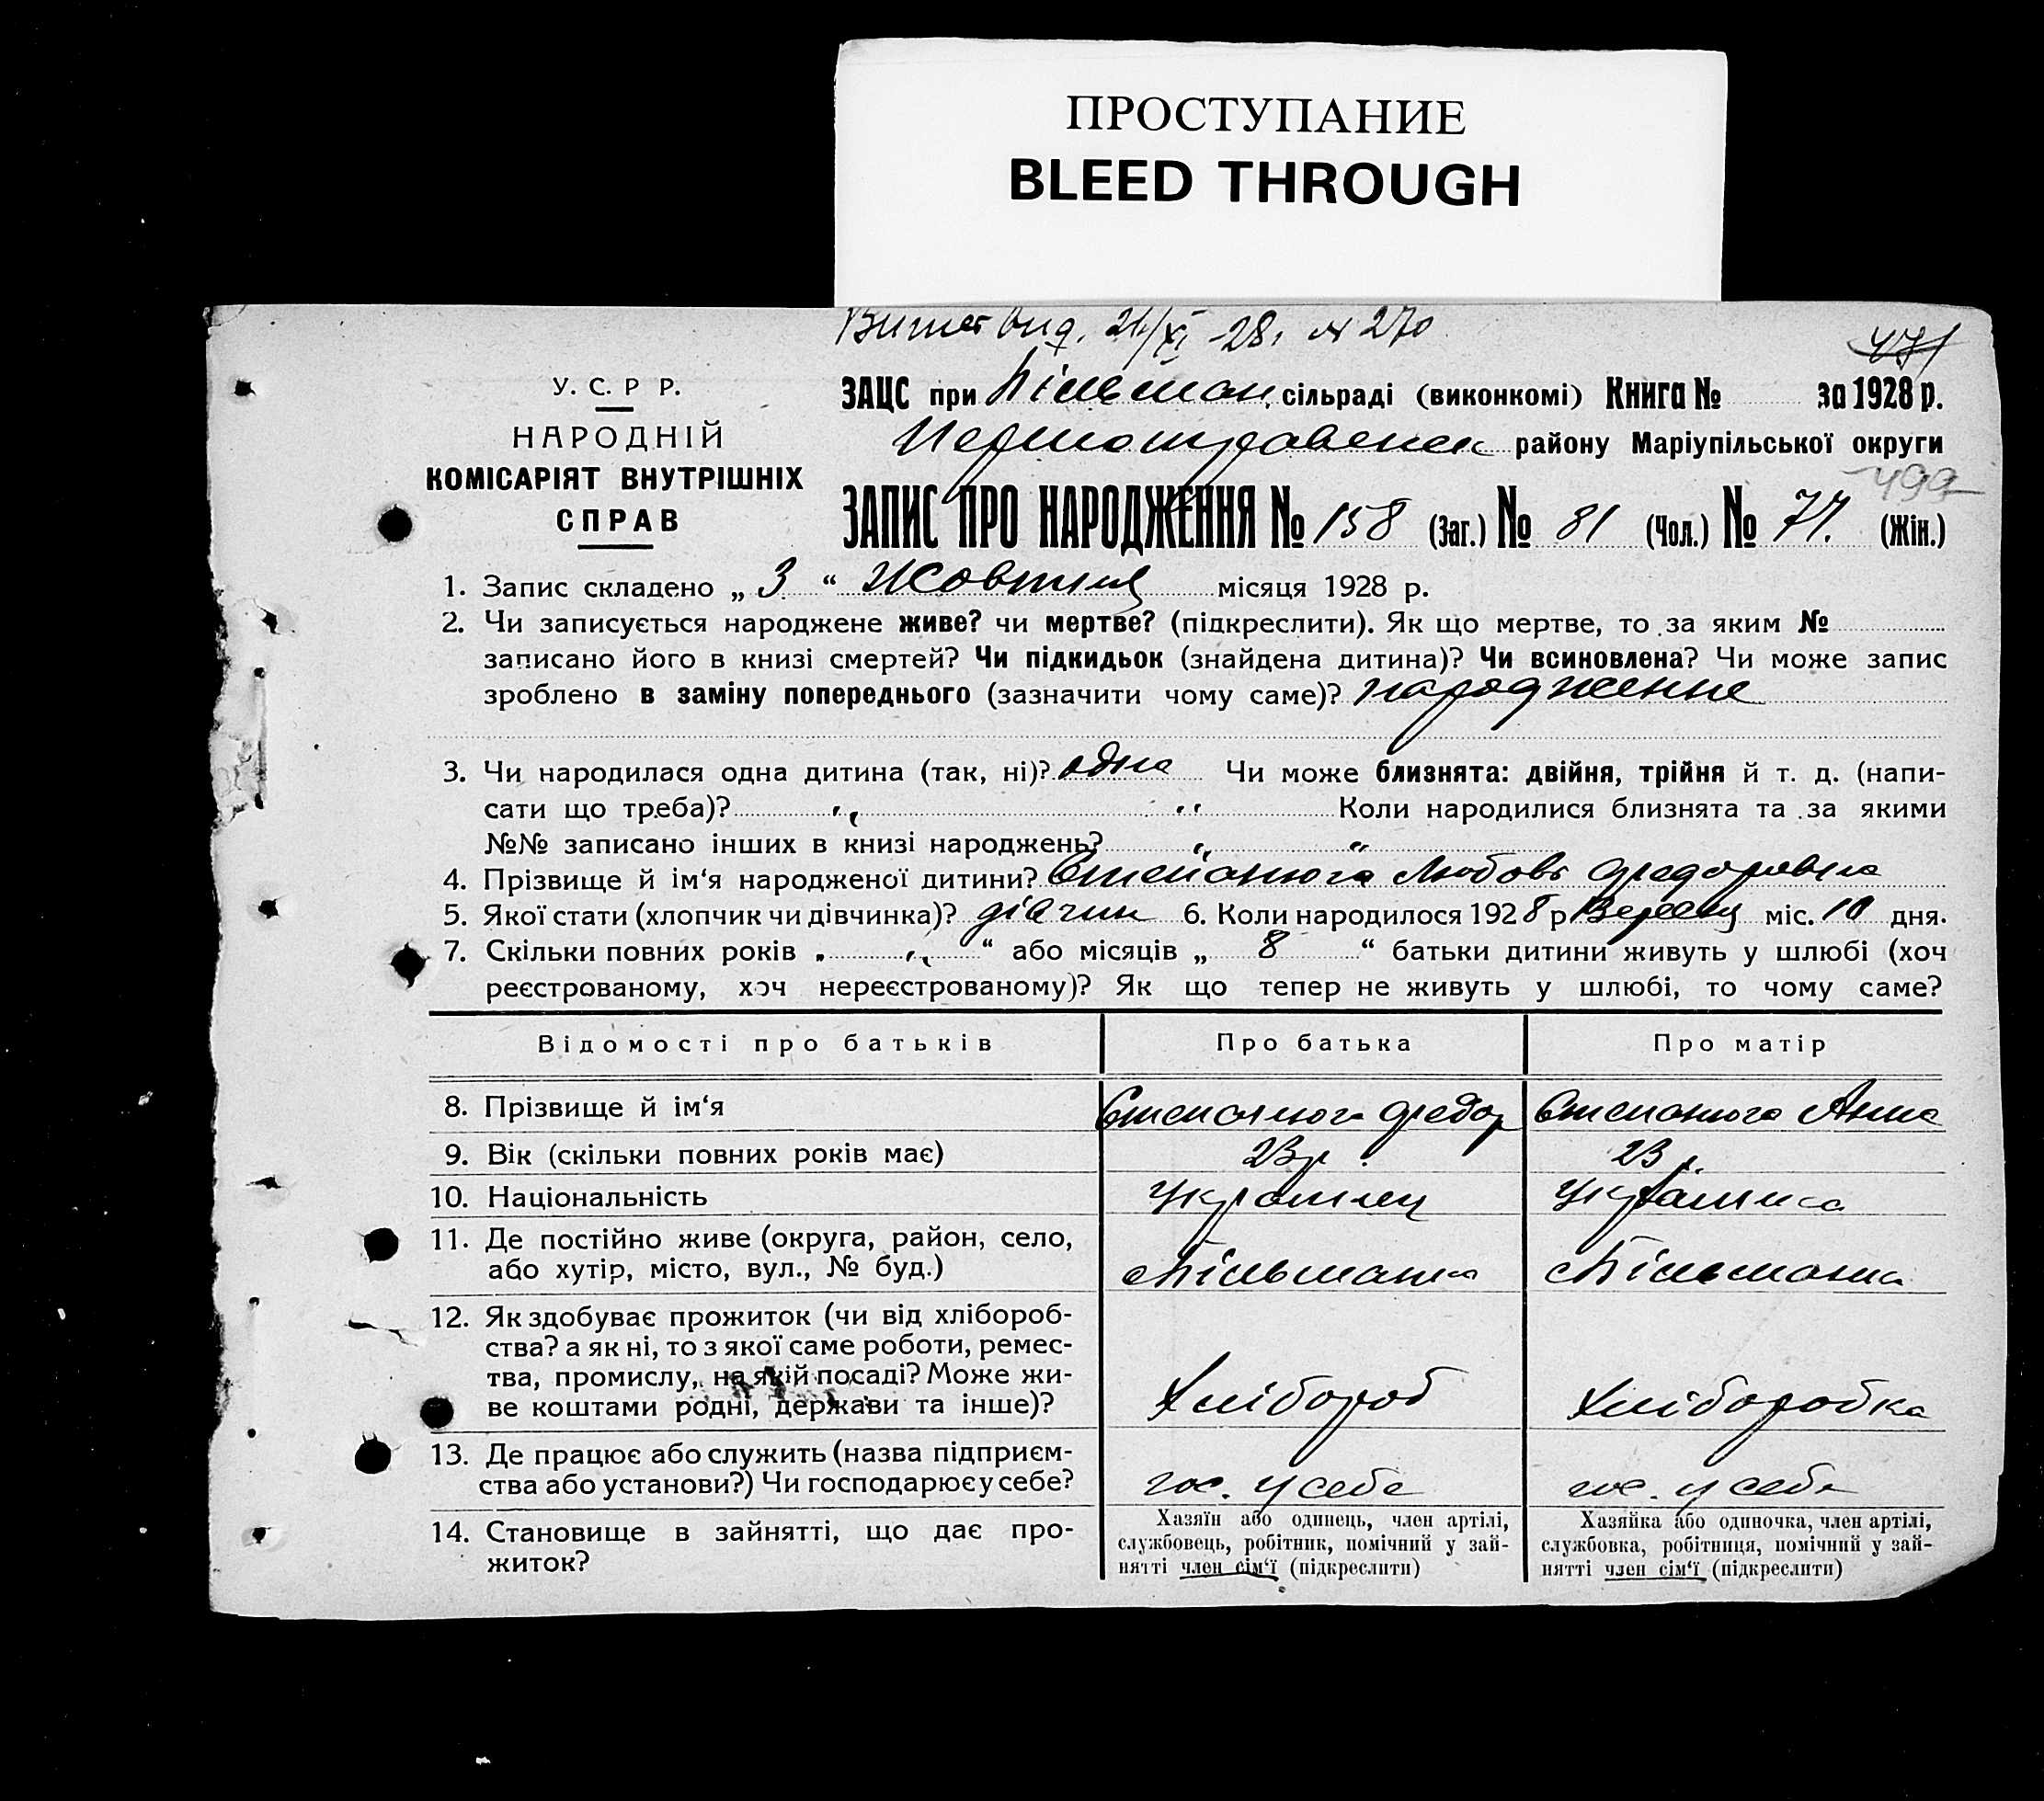 ПРОСТУПАНИЕ
BLEED THROUGH
21/XI -28. № 270
471
У. С. Р Р.
НАРОДНІЙ
КОМІСАРІЯТ ВНУТРІШНІХ
СПРАВ
ЗАЦС при сільраді (виконкомі) Книга № за 1928 р.
району Маріупільської округи
499
ЗАПИС ПРО НАРОДЖЕННЯ № 158 (Заг.) № 81 (Чол.) № 77. (Жін.)
1. Запис складено „ 3 “ Жовтня місяця 1928 р.
2. Чи записується народжене живе? чи мертве? (підкреслити). Як що мертве, то за яким №
записано його в книзі смертей? Чи підкидьок (знайдена дитина)? Чи всиновлена? Чи може запис
зроблено в заміну попереднього (зазначити чому саме)? народження
3. Чи народилася одна дитина (так, ні)? одна Чи може близнята: двійня, трійня й т. д. (напи-
сати що треба)? „ „ Коли народилися близнята та за якими
№№ записано інших в книзі народжень? „ „
4. Прізвище й ім‘я народженої дитини? Степанюга Любовь Федоровна
5. Якої стати (хлопчик чи дівчинка)? дівчин 6. Коли народилося 1928 р. Вересня міс. 10 дня.
7. Скільки повних років „ „ “ або місяців „ 8 “ батьки дитини живуть у шлюбі (хоч
реєстрованому, хоч нереєстрованому)? Як що тепер не живуть у шлюбі, то чому саме?
Відомості про батьків Про батька Про матір
8. Прізвище й ім‘я Степанюга Федор Степанюга Анна
9. Вік (скільки повних років має) 23 р. 23 р.
10. Національність Украинец
11. Де постійно живе (округа, район, село,
або хутір, місто, вул., № буд.)
12. Як здобуває прожиток (чи від хлібороб-
ства? а як ні, то з якої саме роботи, ремес-
тва, промислу, на якій посаді? Може жи-
ве коштами родні, держави та інше)? Хлібороб Хліборобка
13. Де працює або служить (назва підприєм-
ства або установи?) Чи господарює у себе? гос. у себе гос. у себе
14. Становище в зайнятті, що дає про-
житок?
Хазяїн або одинець, член артілі,
службовець, робітник, помічний у зай-
нятті член сім‘ї (підкреслити)
Хазяйка або одиночка, член артілі,
службовка, робітниця, помічний у зай-
нятті член сім‘ї (підкреслити)